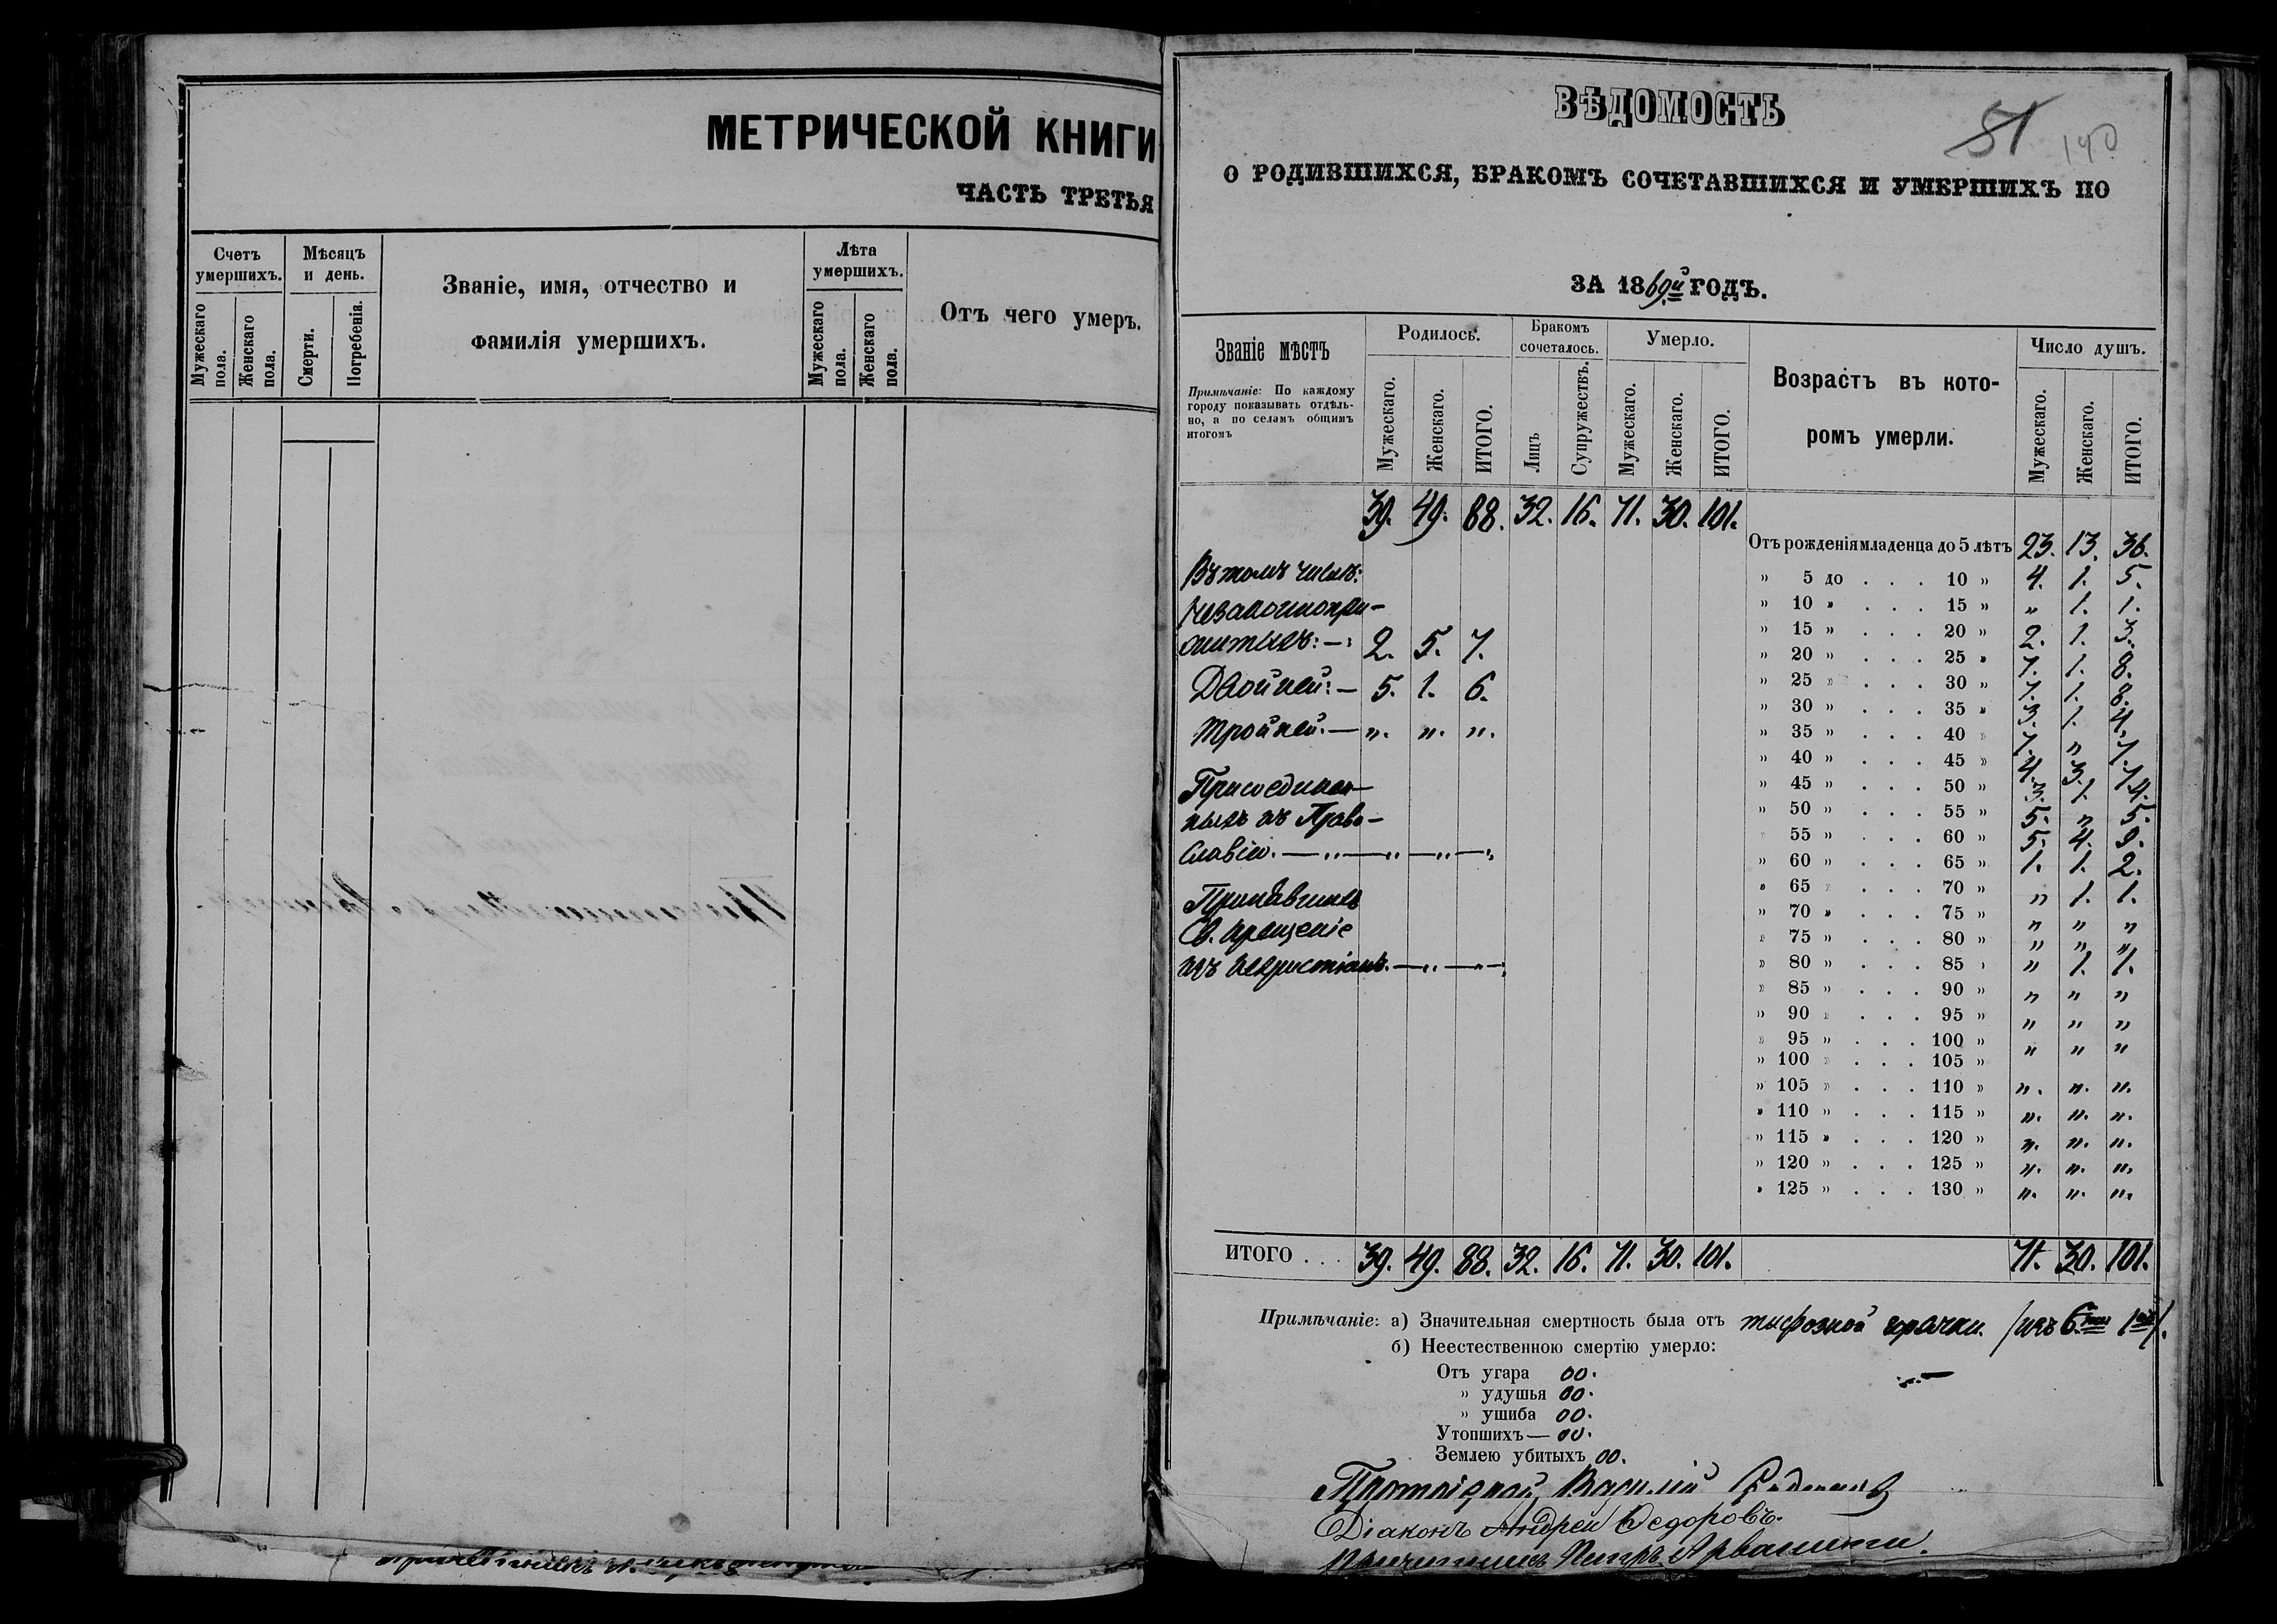 МЕТРИЧЕСКОЙ КНИГИ
ЧАСТЬ ТРЕТЬЯ
Счетъ умершихъ.
Мужескаго пола.
Женскаго пола.
Мѣсяцъ и день.
Смерти.
Погребенія.
Званіе, имя, отчество и
фамилія умершихъ.
Лѣта умершихъ.
Мужескаго пола.
Женскаго пола.
Отъ чего умеръ.
ВѢДОМОСТЬ
51 140
О РОДИВШИХСЯ, БРАКОМЪ СОЧЕТАВШИХСЯ И УМЕРШИХЪ ПО
ЗА 1869й ГОДЪ.
Званіе мѣстъ
Примѣчаніе: По каждому
городу показывать отдѣль-
но, а по селамъ общимъ
итогомъ
Родилось.
Мужескаго.
Женскаго.
ИТОГО.
Бракомъ сочеталось.
Лицъ
Супружествъ.
Умерло.
Мужескаго.
Женскаго.
ИТОГО.
Возрастъ въ кото-
ромъ умерли.
Число душъ.
Мужескаго.
Женскаго.
ИТОГО.
39. 49. 88. 32. 16. 71. 30. 101.
Въ томъ числѣ:
Незаконнопри-
житыхъ: — 2. 5. 7.
Двойней: — 5. 1. 6.
Тройней. — „. „. „.
Присоединен-
ныхъ къ Право-
славію. — „ — „ — „ — „
Принявшихъ
Св. Крещеніе
изъ нехристіанъ. — „ — „ —
Отъ рожденія младенца до 5 лѣтъ 23. 13. 36.
» 5 до . . . 10 » 4. 1. 5.
» 10 » . . . 15 » „ 1. 1.
» 15 » . . . 20 » 2. 1. 3.
» 20 » . . . 25 » 7. 1. 8.
» 25 » . . . 30 » 7. 1. 8.
» 30 » . . . 35 » 3. 1. 4.
» 35 » . . . 40 » 7. „ 7.
» 40 » . . . 45 » 4. 3. 7.
» 45 » . . . 50 » 3. 1. 4.
» 50 » . . . 55 » 5. „ 5.
» 55 » . . . 60 » 5. 4. 9.
» 60 » . . . 65 » 1. 1. 2.
» 65 » . . . 70 » „ 1. 1.
» 70 » . . . 75 » „ „ „
» 75 » . . . 80 » „ „ „
» 80 » . . . 85 » „ 1. 1.
» 85 » . . . 90 » „ „ „
» 90 » . . . 95 » „ „ „
» 95 » . . . 100 » „ „ „
» 100 » . . . 105 »
» 105 » . . . 110 » „. „. „.
» 110 » . . . 115 » „. „. „.
» 115 » . . . 120 » „. „. „.
» 120 » . . . 125 » „. „. „.
» 125 » . . . 130 » „. „. „.
ИТОГО . . . 39. 49. 88. 32. 16. 71. 30. 101. 71. 30. 101.
Примѣчаніе: а) Значительная смертность была отъ тифозной горячки. /изъ 6ти 1нъ/.
б) Неестественною смертію умерло:
Отъ угара 00.
» удушья 00.
» ушиба 00.
Утопшихъ — 00.
Землею убитыхъ 00.
Протоіерей Василій
Діаконъ Андрей Федоровъ.
Причетникъ Петръ